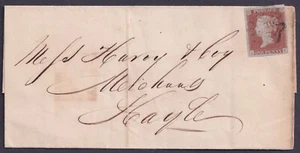 Mess Harvey & Coy
Merchants
Hayle